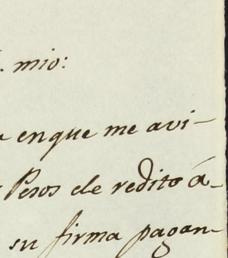 mio:
enque me avi-
Pesos de redito á-
su firma pagan-